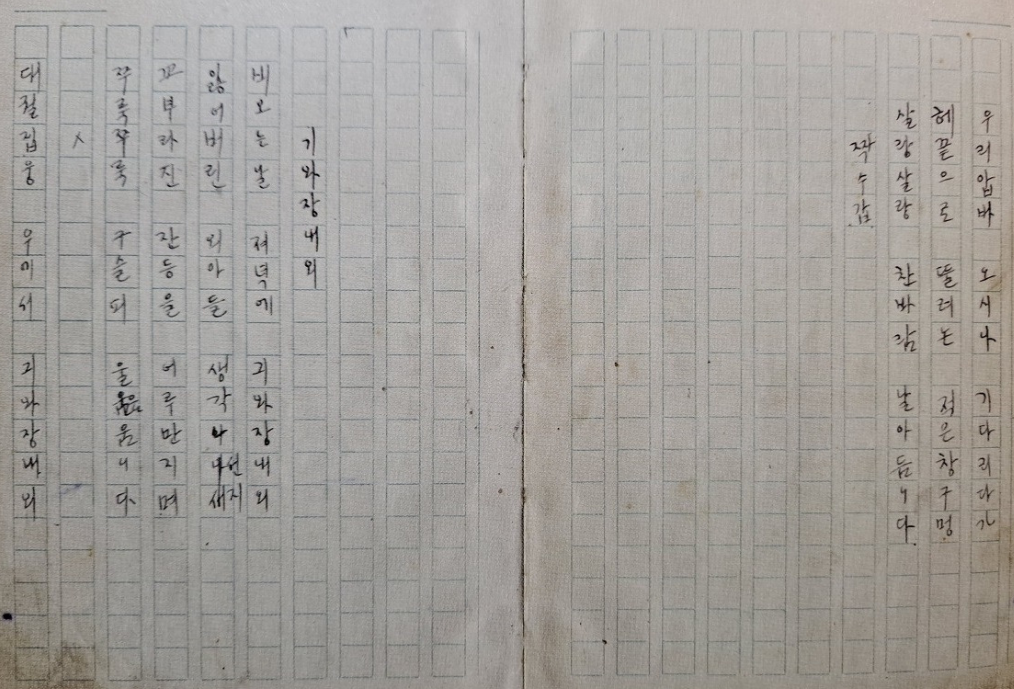 우리압바 오시나 기다리다가
헤끝으로 뚤려논 적은창구멍
살랑살랑 찬바람 날아듭니다
짝수갑.
기와장내외
비오는날 져녁에 기와장내외
잃어버린 외아들 생각나선지
꼬부라진 잔등을 어루만지며
쭈룩쭈룩 구슬피 울음웁니다
대궐집웅 우에서 기와장내외